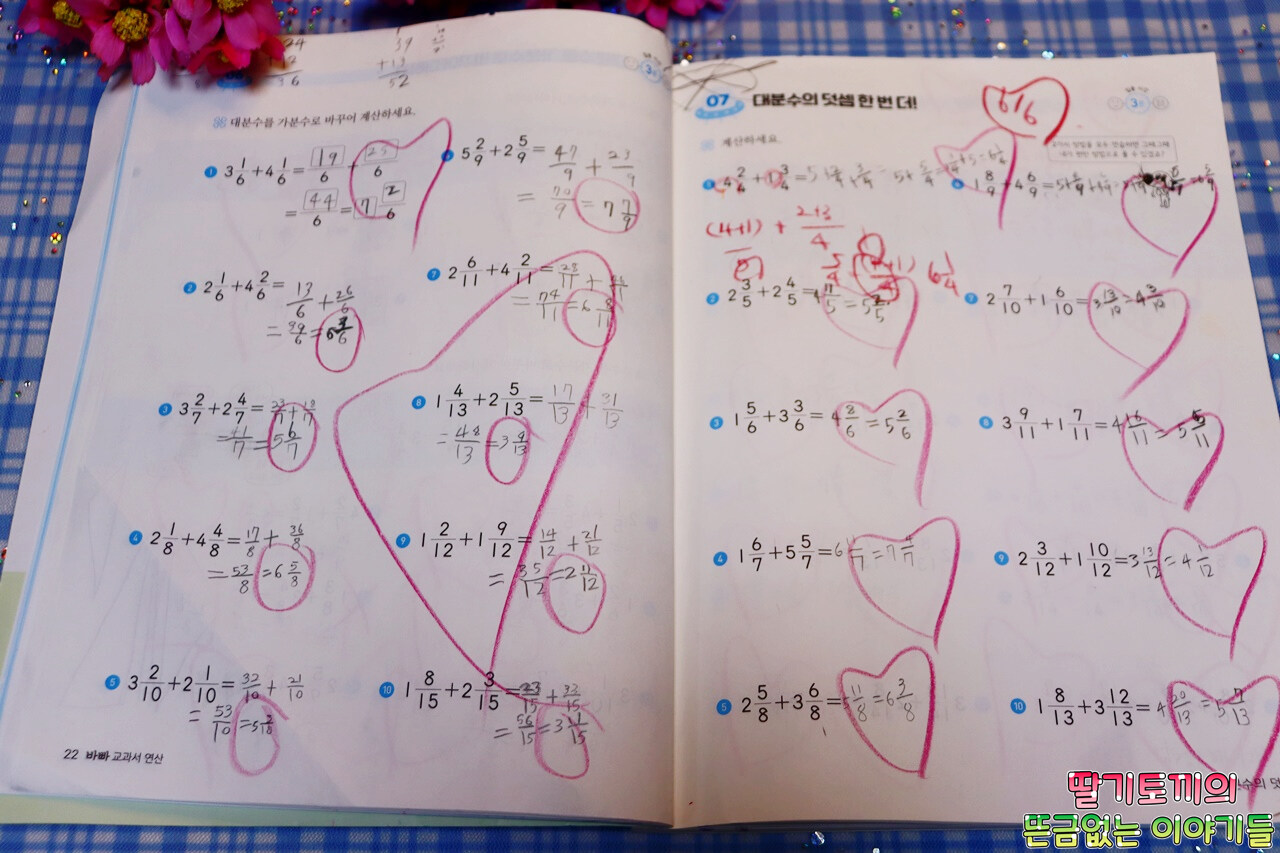 24
39
+13
52
36
대분수를 가분수로 바꾸어 계산하세요.
① 3 1/6 + 4 1/6 = 19/6 + 25/6
= 44/6 = 7 2/6
② 2 1/6 + 4 2/6 = 13/6 + 26/6
= 39/6 = 6 3/6
③ 3 2/7 + 2 4/7 = 23/7 + 18/7
= 41/7 = 5 6/7
④ 2 1/8 + 4 4/8 = 17/8 + 36/8
= 53/8 = 6 5/8
⑤ 3 2/10 + 2 1/10 = 32/10 + 21/10
= 53/10 = 5 3/10
5 2/9 + 2 5/9 = 47/9 + 23/9
= 70/9 = 7 7/9
⑦ 2 6/11 + 4 2/11 = 28/11 +
= 74/11 = 6 8/11
⑧ 1 4/13 + 2 5/13 = 17/13 + 31/13
= 48/13 = 3 9/13
⑨ 1 2/12 + 1 9/12 = 14/12 + 21/12
= 35/12 = 2 11/12
⑩ 1 8/15 + 2 3/15 = 23/15 + 33/15
= 56/15 = 3 11/15
22 바빠 교과서 연산
07 대분수의 덧셈 한 번 더!
계산하세요.
① 4 2/4 + 1 3/4
(4+1) + 2+3/4
6 1/4
② 2 3/5 + 2 4/5 = 5 2/5
③ 1 5/6 + 3 3/6 = 4 8/6 = 5 2/6
④ 1 6/7 + 5 5/7 = 6 11/7 = 7 4/7
⑤ 2 5/8 + 3 6/8 = 5 11/8 = 6 3/8
⑥ 1 8/9 + 4 6/9
⑦ 2 7/10 + 1 6/10 = 3 13/10 = 4 3/10
⑧ 3 9/11 + 1 7/11 = 4 16/11 = 5 5/11
⑨ 2 3/12 + 1 10/12 = 3 13/12 = 4 1/12
⑩ 1 8/13 + 3 12/13 = 4 20/13 = 5 7/13
딸기토끼의
뜬금없는 이야기들